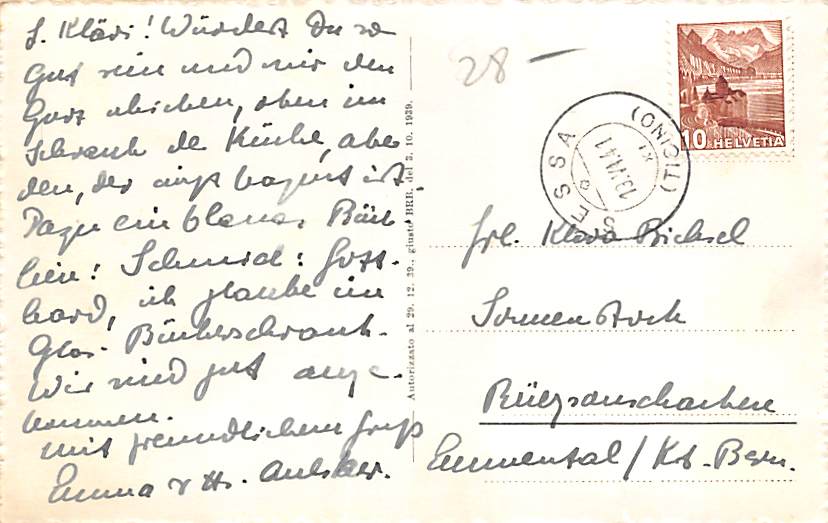 L. Kläri! Würdest Du so
gut sein und mir den
schicken, oben im
Schrank de Küche, aber
den, der angebogen ist
Dazu ein blaues Büch-
lein: Schmid: Gott-
hard, ich glaube im
Glas-Bücherschrank.
Wir sind gut ange-
kommen.
mit freundlichem Gruss
Emma & Hs.
Autorizzato al 29. 12. 39., giusto BRB. del 3. 10. 1939.
28-
SESSA
(TICINO)
13.VI.41
10 HELVETIA
Frl. Klara Bichsel
Sonnen
Rüegsauschachen
Emmental / Kt. Bern.